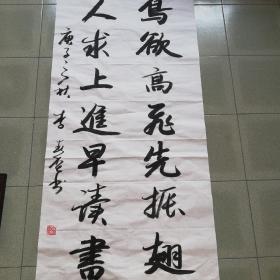 鸟欲高飛先振翅
人求上進早读書
庚子之秋 李